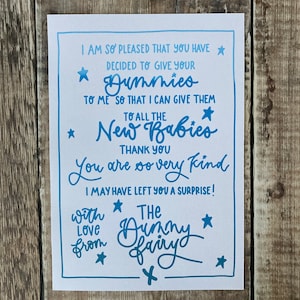 I AM SO PLEASED THAT YOU HAVE
DECIDED TO GIVE YOUR
Dummies
TO ME SO THAT I CAN GIVE THEM
TO ALL THE
New Babies
THANK YOU
You are so very kind
I MAY HAVE LEFT YOU A SURPRISE!
With
LOVE
from
THE
Dummy
fairy
X